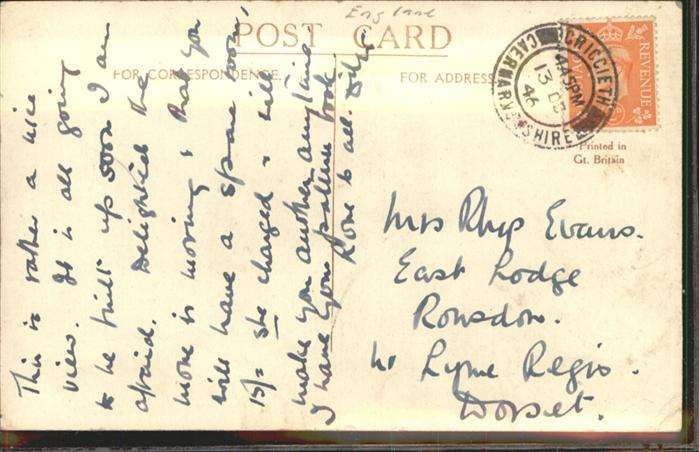 England
POST CARD
FOR CORRESPONDENCE.
FOR ADDRESS
CRICCIETH
4:45 PM
13 DE
46
CAERNARVONSHIRE
REVENUE
Printed in
Gt. Britain
This is rather a nice
view. It is all going
to be built up soon I am
afraid. Delighted the
move is moving & that you
will have a spare room,
15/= she charged & will
make you another anytime
I have your pattern book
Love to all.
Mrs Rhys Evans.
East Lodge
Rousdon.
Nr Lyme Regis.
Dorset.